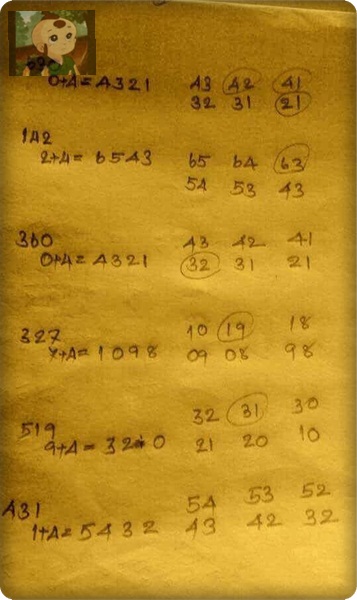 0+4=4321 43 42 41
32 31 21
142
2+4=6543 65 64 63
54 53 43
360 43 42 41
0+4=4321 32 31 21
327 10 19 18
7+4=1098 09 08 98
519 32 31 30
9+4=3210 21 20 10
431 54 53 52
1+4=5432 43 42 32